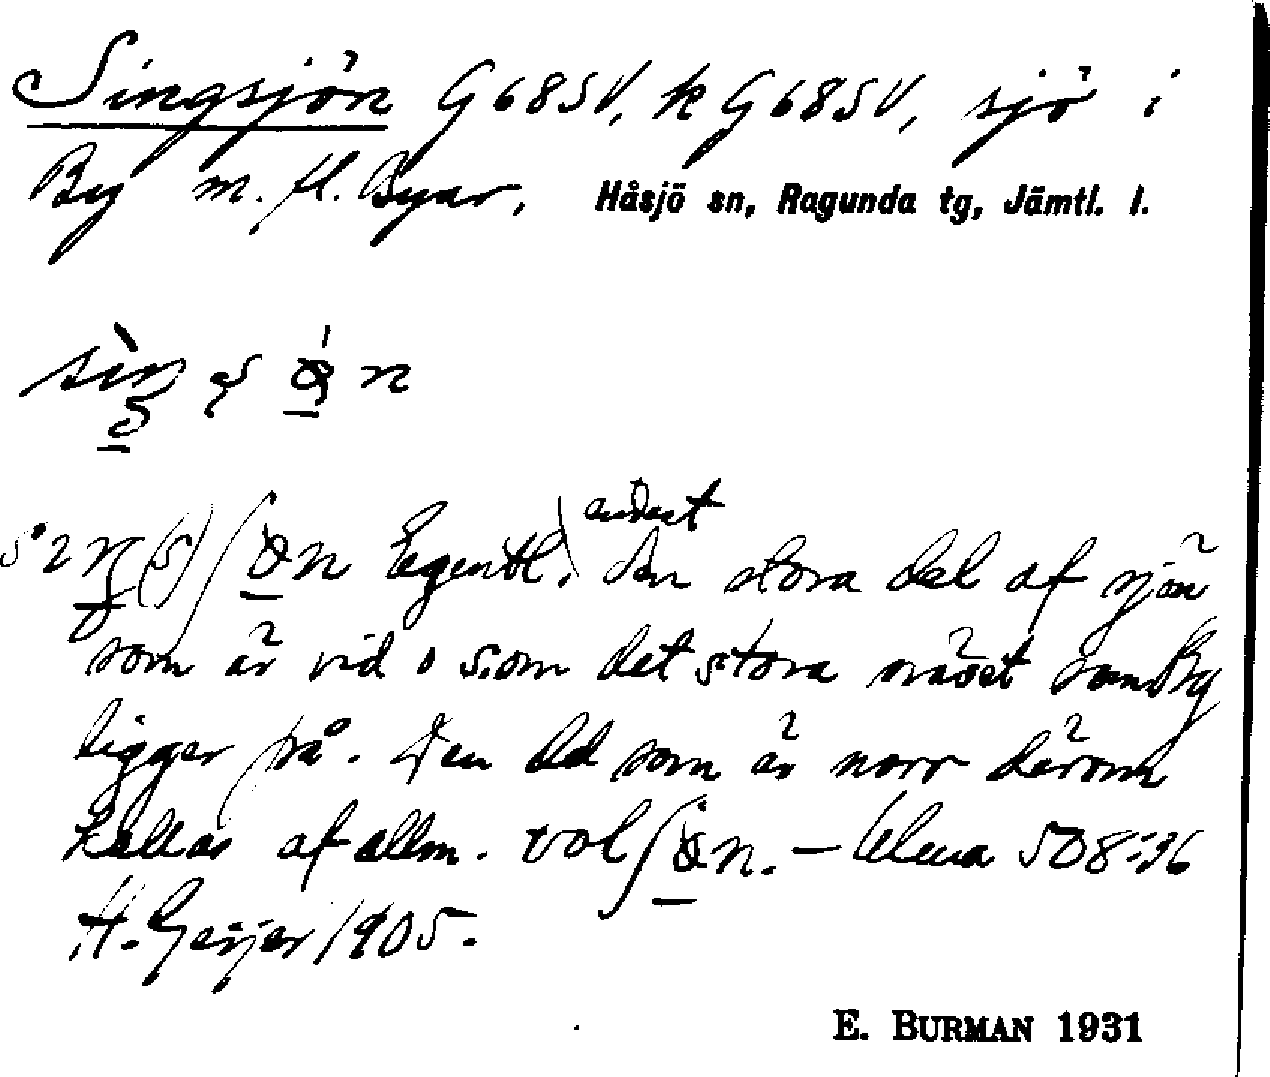 Singsjön G685V, k G685V, sjö i
By m. fl. Byar, Håsjö sn, Ragunda tg, Jämtl. l.
Egentl. endast den stora del af sjön
som är vid o S. om det stora näset som By
ligger på. Den del som är norr därom
kallas af allm. – Ulma 508:36
H. Geijer 1905.
E. BURMAN 1931